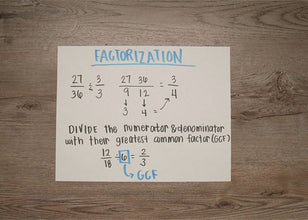 FACTORIZATION
27/36 ÷ 3/3 27 36 / 9 12 = 3/4
↓ ↓
3 4 =
DIVIDE the numerator & denominator
with their greatest common factor (GCF)
12/18 ÷ 6 = 2/3
GCF